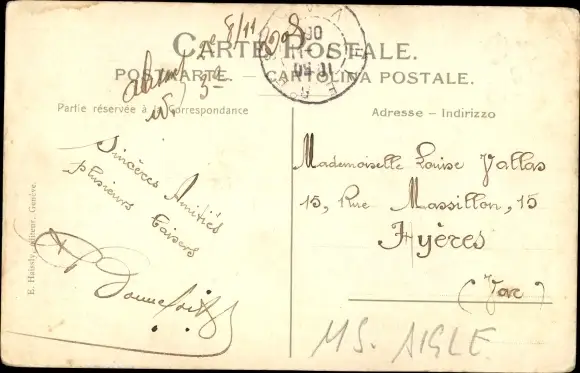 CARTE POSTALE.
POSTKARTE. — CARTOLINA POSTALE.
Partie réservée à la Correspondance
Adresse – Indirizzo
Sincères Amitiés
plusieurs baisers
Mademoiselle Louise Vallas
15, Rue Massillon, 15
Hyères
(Var)
MS. AIGLE
E. Hassly, éditeur, Genève.